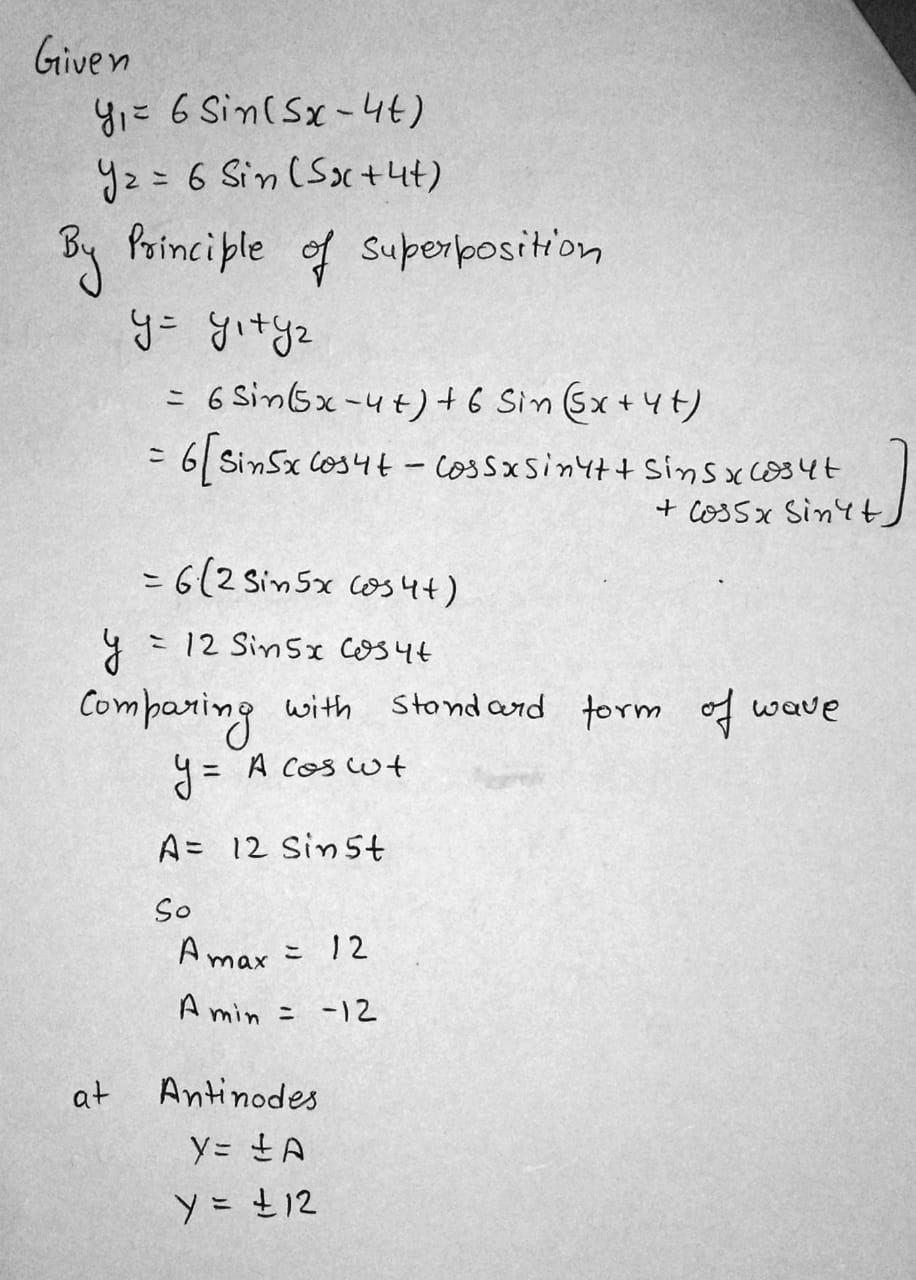 Given
y₁= 6 Sin(5x-4t)
y₂ = 6 Sin (5x+4t)
By Principle of superposition
y= y₁+y₂
= 6 Sin(5x-4t)+6 Sin(5x+4t)
= 6[Sin5x Cos4t - Cos5x Sin4t + Sin5x Cos4t
+ Cos5x Sin4t]
= 6(2 Sin5x Cos 4t)
y = 12 Sin5x Cos4t
Comparing with Standard form of wave
y= A Cos ωt
A= 12 Sin5t
So
A max = 12
A min = -12
at Antinodes
y= ±A
y = ±12